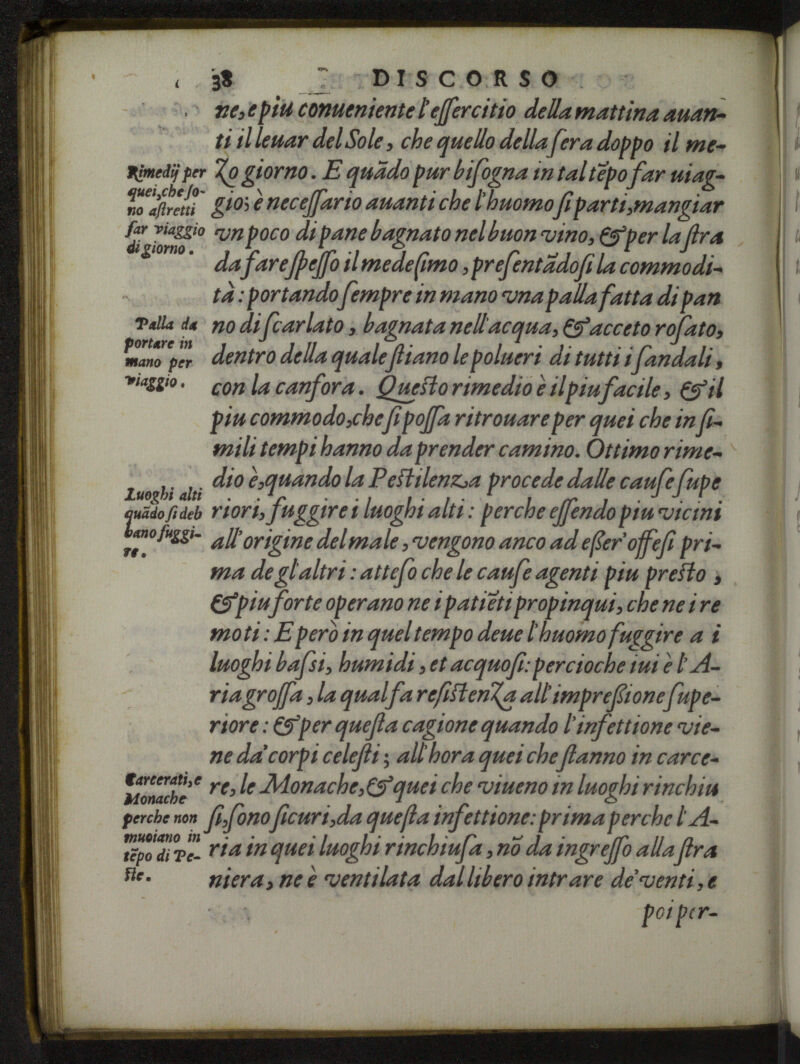 38 DISCORSO
ne, e piu conueniente l'eſſercitio della mattina auan-
ti il leuar del Sole, che quello della ſera doppo il me-
Rimedij per
quei, che ſo-
no aſtretti
far viaggio
di giorno.
zo giorno. E quãdo pur biſogna in tal tẽpo far uiag-
gio; è neceſſario auanti che l'huomo ſi parti, mangiar
vn poco di pane bagnato nel buon vino, & per la ſtra
da fare ſpeſſo il medeſimo, preſentãdoſi la commodi-
tà: portando ſempre in mano vna palla fatta di pan
Palla da
portare in
mano per
viaggio.
no di ſcarlato, bagnata nell'acqua, & acceto roſato,
dentro della quale ſtiano le polueri di tutti i ſandali,
con la canfora. Queſto rimedio è il piu facile, & il
piu commodo, che ſi poſſa ritrouare per quei che in ſi-
mili tempi hanno da prender camino. Ottimo rime-
dio è, quando la Peſtilenza procede dalle cauſe ſupe
Luoghi alti
quãdo ſi deb
bano fuggi-
re.
riori, fuggire i luoghi alti: perche eſſendo piu vicini
all'origine del male, vengono anco ad eßer' offeſi pri-
ma de gl'altri: atteſo che le cauſe agenti piu preſto,
& piu forte operano ne i patiẽti propinqui, che ne i re
moti: E però in quel tempo deue l'huomo fuggire a i
luoghi baſsi, humidi, et acquoſi: percioche iui è l'A-
ria groſſa, la qual fa reſiſtenza all'impreßione ſupe-
riore: & per queſta cagione quando l'infettione vie-
ne da' corpi celeſti; all'hora quei che ſtanno in carce-
Carcerati, e
Monache
perche non
muoiano in
tẽpo di Pe-
ſte.
re, le Monache, & quei che viueno in luoghi rinchiu
ſi, ſono ſicuri, da queſta infettione: prima perche l'A-
ria in quei luoghi rinchiuſa, nõ da ingreſſo alla ſtra
niera, ne è ventilata dal libero intrare de' venti, e
poi per-